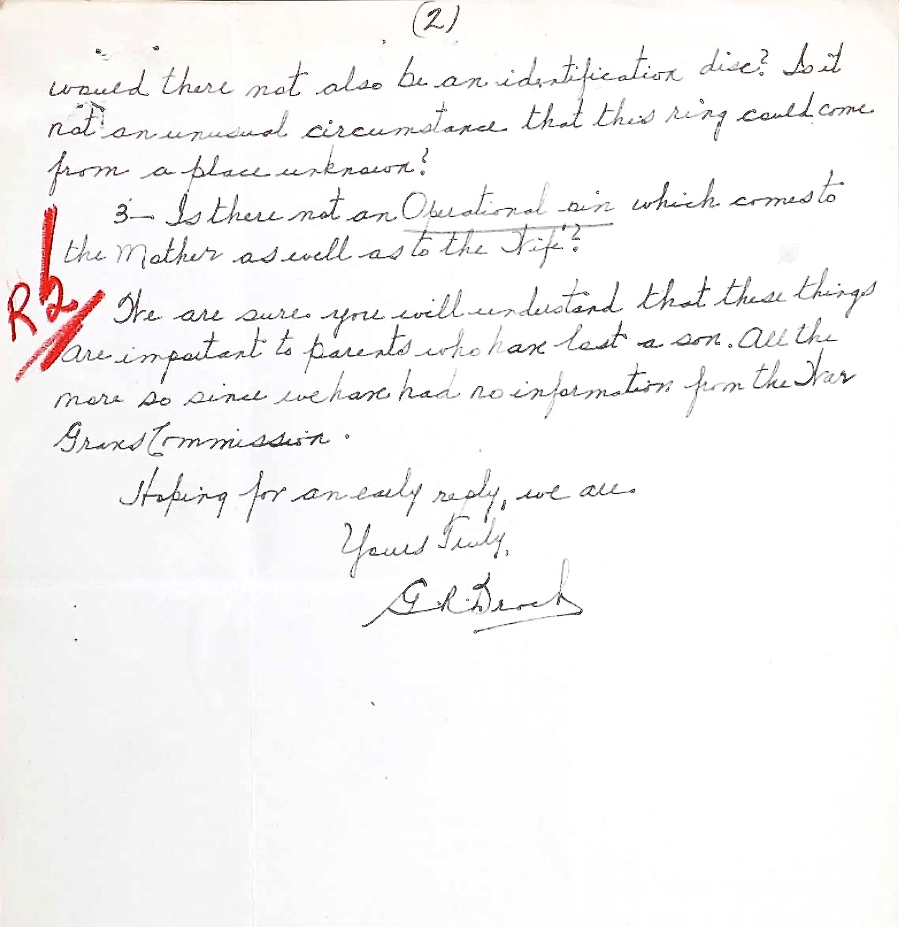 (2)
would there not also be an identification disc? Is it
not an unusual circumstance that this ring could come
from a place unknown?
3— Is there not an Operational pin which comes to
the Mother as well as to the Wife?
R2
We are sure you will understand that these things
are important to parents who have lost a son. All the
more so since we have had no information from the War
Graves Commission.
Hoping for an early reply, we are
Yours Truly,
G R